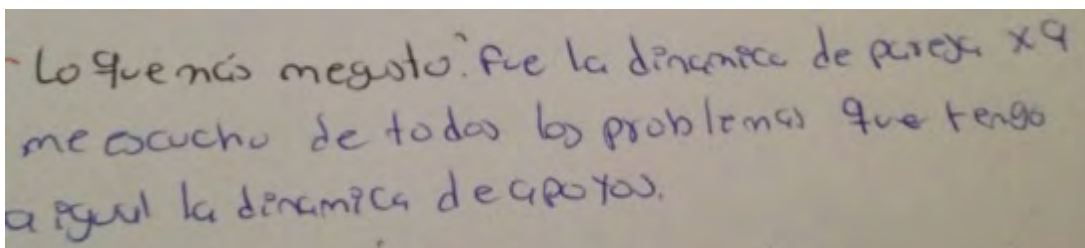 - Lo que más megusto. fue la dinamica de pareja xq
me escucho de todos los problemas que tengo
a igual la dinamica de apoyos.